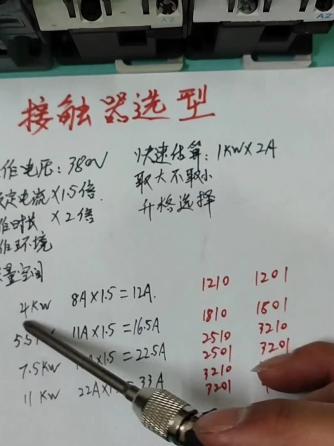 A2
接触器选型
作电压:380V
定电流×1.5倍
×2倍
作环境
空间
快速估算:1KW×2A
取大不取小
升格选择
4KW 8A×1.5=12A. 1210 1201
5.5 11A×1.5=16.5A 1810 1801
2510 3210
7.5KW A×1.5=22.5A 2501 3201
3210
11KW 22A×1.5=33A 3201